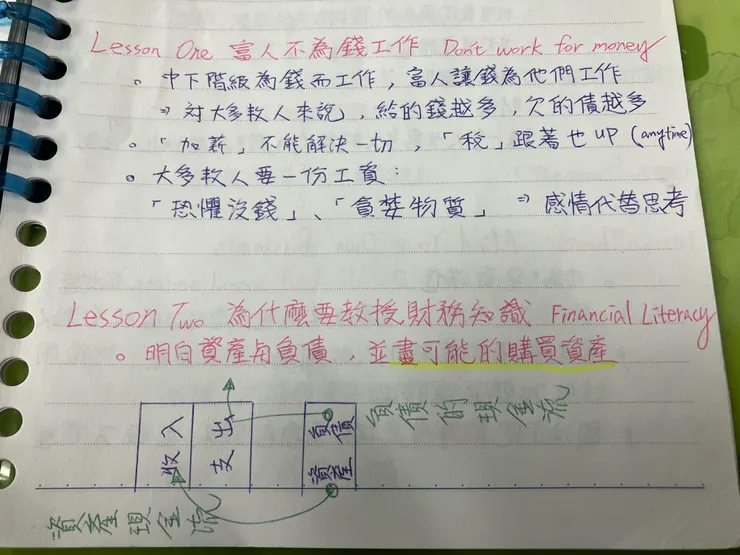 Lesson One 富人不為錢工作 Dont work for money
。中下階級為錢而工作，富人讓錢為他們工作
⇒ 对大多救人來說，給的錢越多，欠的債越多
。「加薪」不能解決一切，「稅」跟著也 UP (anytime)
。大多救人要一份工資：
「恐懼沒錢」、「貪婪物質」 ⇒ 感情代替思考
Lesson Two 為什麼要教授財務知識 Financial Literacy
。明白資產与負債，並盡可能的購買資產
收入
支出
資產
負債
負債的現金流
資產現金流